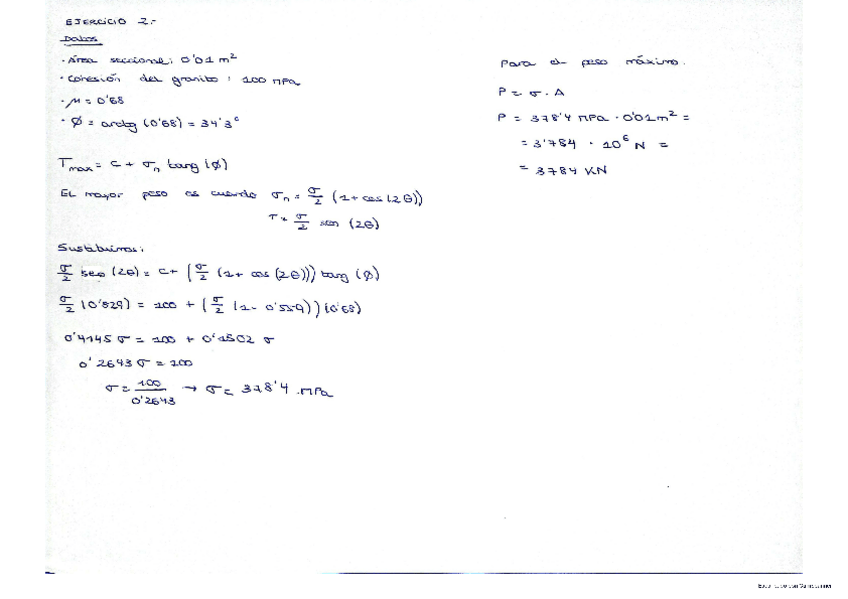 EJERCICIO 2.-
Datos
· Área seccional: 0'01 m²
· Cohesión del granito: 100 MPa
· μ = 0'68
· Ø = arctg (0'68) = 34'3º
Tmax = c + σn tang (Ø)
El mayor peso es cuando σn = σ/2 (1 + cos (2θ))
τ = σ/2 sen (2θ)
Sustituimos:
σ/2 sen (2θ) = c + (σ/2 (1 + cos (2θ))) tang (Ø)
σ/2 (0'829) = 100 + (σ/2 (1 - 0'559)) (0'68)
0'4145 σ = 100 + 0'1502 σ
0'2643 σ = 100
σ = 100/0'2643 → σ = 378'4 MPa
Para el peso máximo.
P = σ · A
P = 378'4 MPa · 0'01 m² =
= 3'784 · 10⁶ N =
= 3784 KN